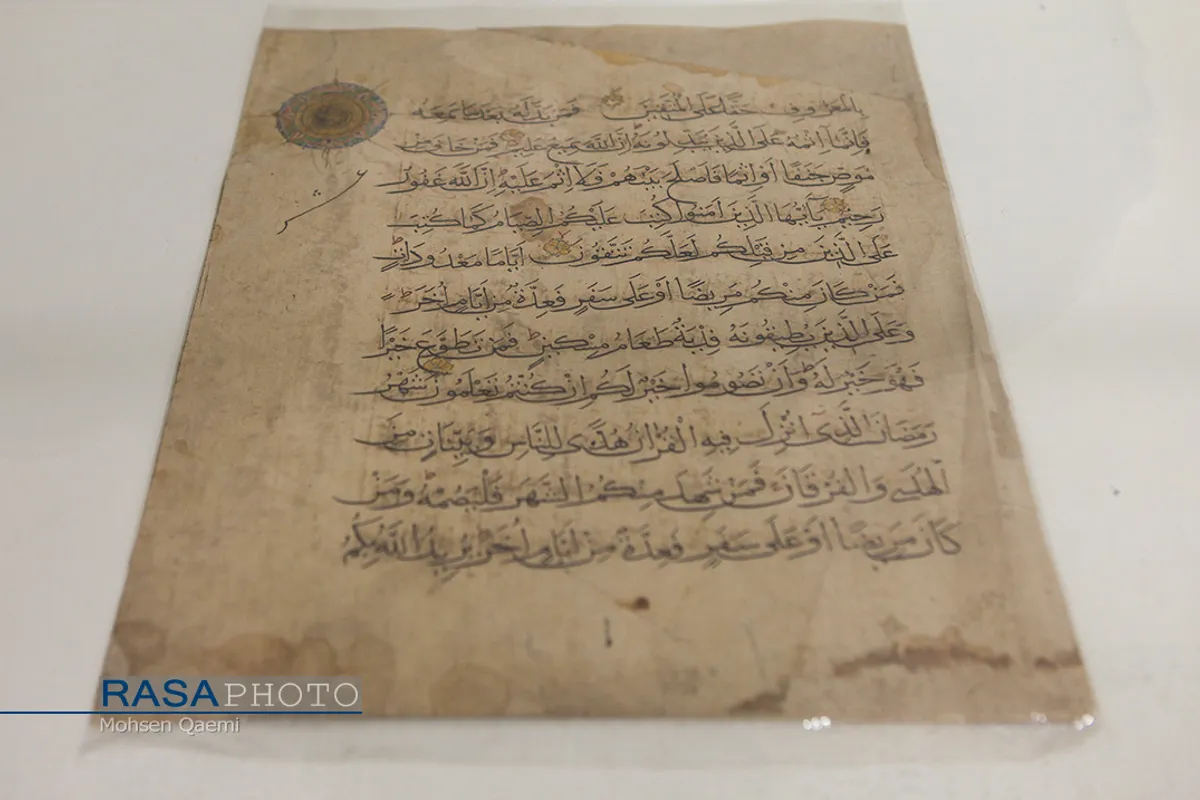 بِالْمَعْرُوفِ حَقًّا عَلَى الْمُتَّقِينَ فَمَنْ بَدَّلَهُ بَعْدَمَا سَمِعَهُ
فَإِنَّمَا إِثْمُهُ عَلَى الَّذِينَ يُبَدِّلُونَهُ إِنَّ اللَّهَ سَمِيعٌ عَلِيمٌ فَمَنْ خَافَ مِنْ
مُوصٍ جَنَفًا أَوْ إِثْمًا فَأَصْلَحَ بَيْنَهُمْ فَلَا إِثْمَ عَلَيْهِ إِنَّ اللَّهَ غَفُورٌ
رَحِيمٌ يَا أَيُّهَا الَّذِينَ آمَنُوا كُتِبَ عَلَيْكُمُ الصِّيَامُ كَمَا كُتِبَ
عَلَى الَّذِينَ مِنْ قَبْلِكُمْ لَعَلَّكُمْ تَتَّقُونَ أَيَّامًا مَعْدُودَاتٍ
فَمَنْ كَانَ مِنْكُمْ مَرِيضًا أَوْ عَلَى سَفَرٍ فَعِدَّةٌ مِنْ أَيَّامٍ أُخَرَ
وَعَلَى الَّذِينَ يُطِيقُونَهُ فِدْيَةٌ طَعَامُ مِسْكِينٍ فَمَنْ تَطَوَّعَ خَيْرًا
فَهُوَ خَيْرٌ لَهُ وَأَنْ تَصُومُوا خَيْرٌ لَكُمْ إِنْ كُنْتُمْ تَعْلَمُونَ شَهْرُ
رَمَضَانَ الَّذِي أُنْزِلَ فِيهِ الْقُرْآنُ هُدًى لِلنَّاسِ وَبَيِّنَاتٍ مِنَ
الْهُدَى وَالْفُرْقَانِ فَمَنْ شَهِدَ مِنْكُمُ الشَّهْرَ فَلْيَصُمْهُ وَمَنْ
كَانَ مَرِيضًا أَوْ عَلَى سَفَرٍ فَعِدَّةٌ مِنْ أَيَّامٍ أُخَرَ يُرِيدُ اللَّهُ بِكُمُ
RASA PHOTO
Mohsen Qaemi